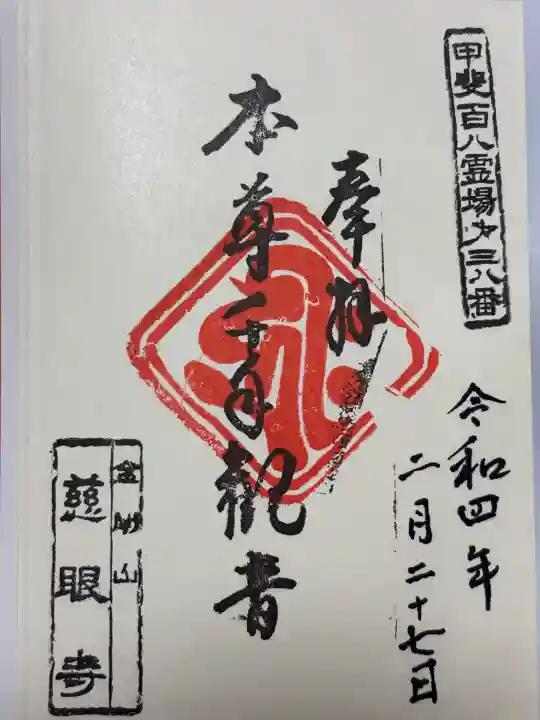 甲斐百八霊場㐧三八番
奉拝
令和四年
二月二十七日
本尊千手観音
金剛山
慈眼寺